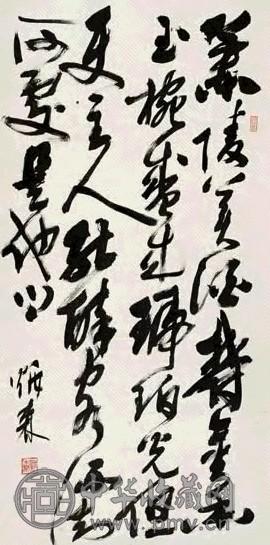 蘭陵美酒鬱金香
玉椀盛来琥珀光但
使主人能醉客不知
何處是他鄉
中华收藏网